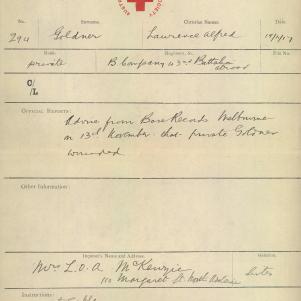 No. Surname. Christian Names. Date.
294 Goldner Lawrence Alfred
Rank. Regiment, &c.
private B. Company 43rd Battalion
abroad
O/L
OFFICIAL REPORTS:
Advice from Base Records Melbourne
on 13th November that private Goldner
wounded
Other Information:
Inquirer's Name and Address. Relation.
Mrs L.O.A McKenzie Sister
110 Margaret St. North Adelaide
Instructions: